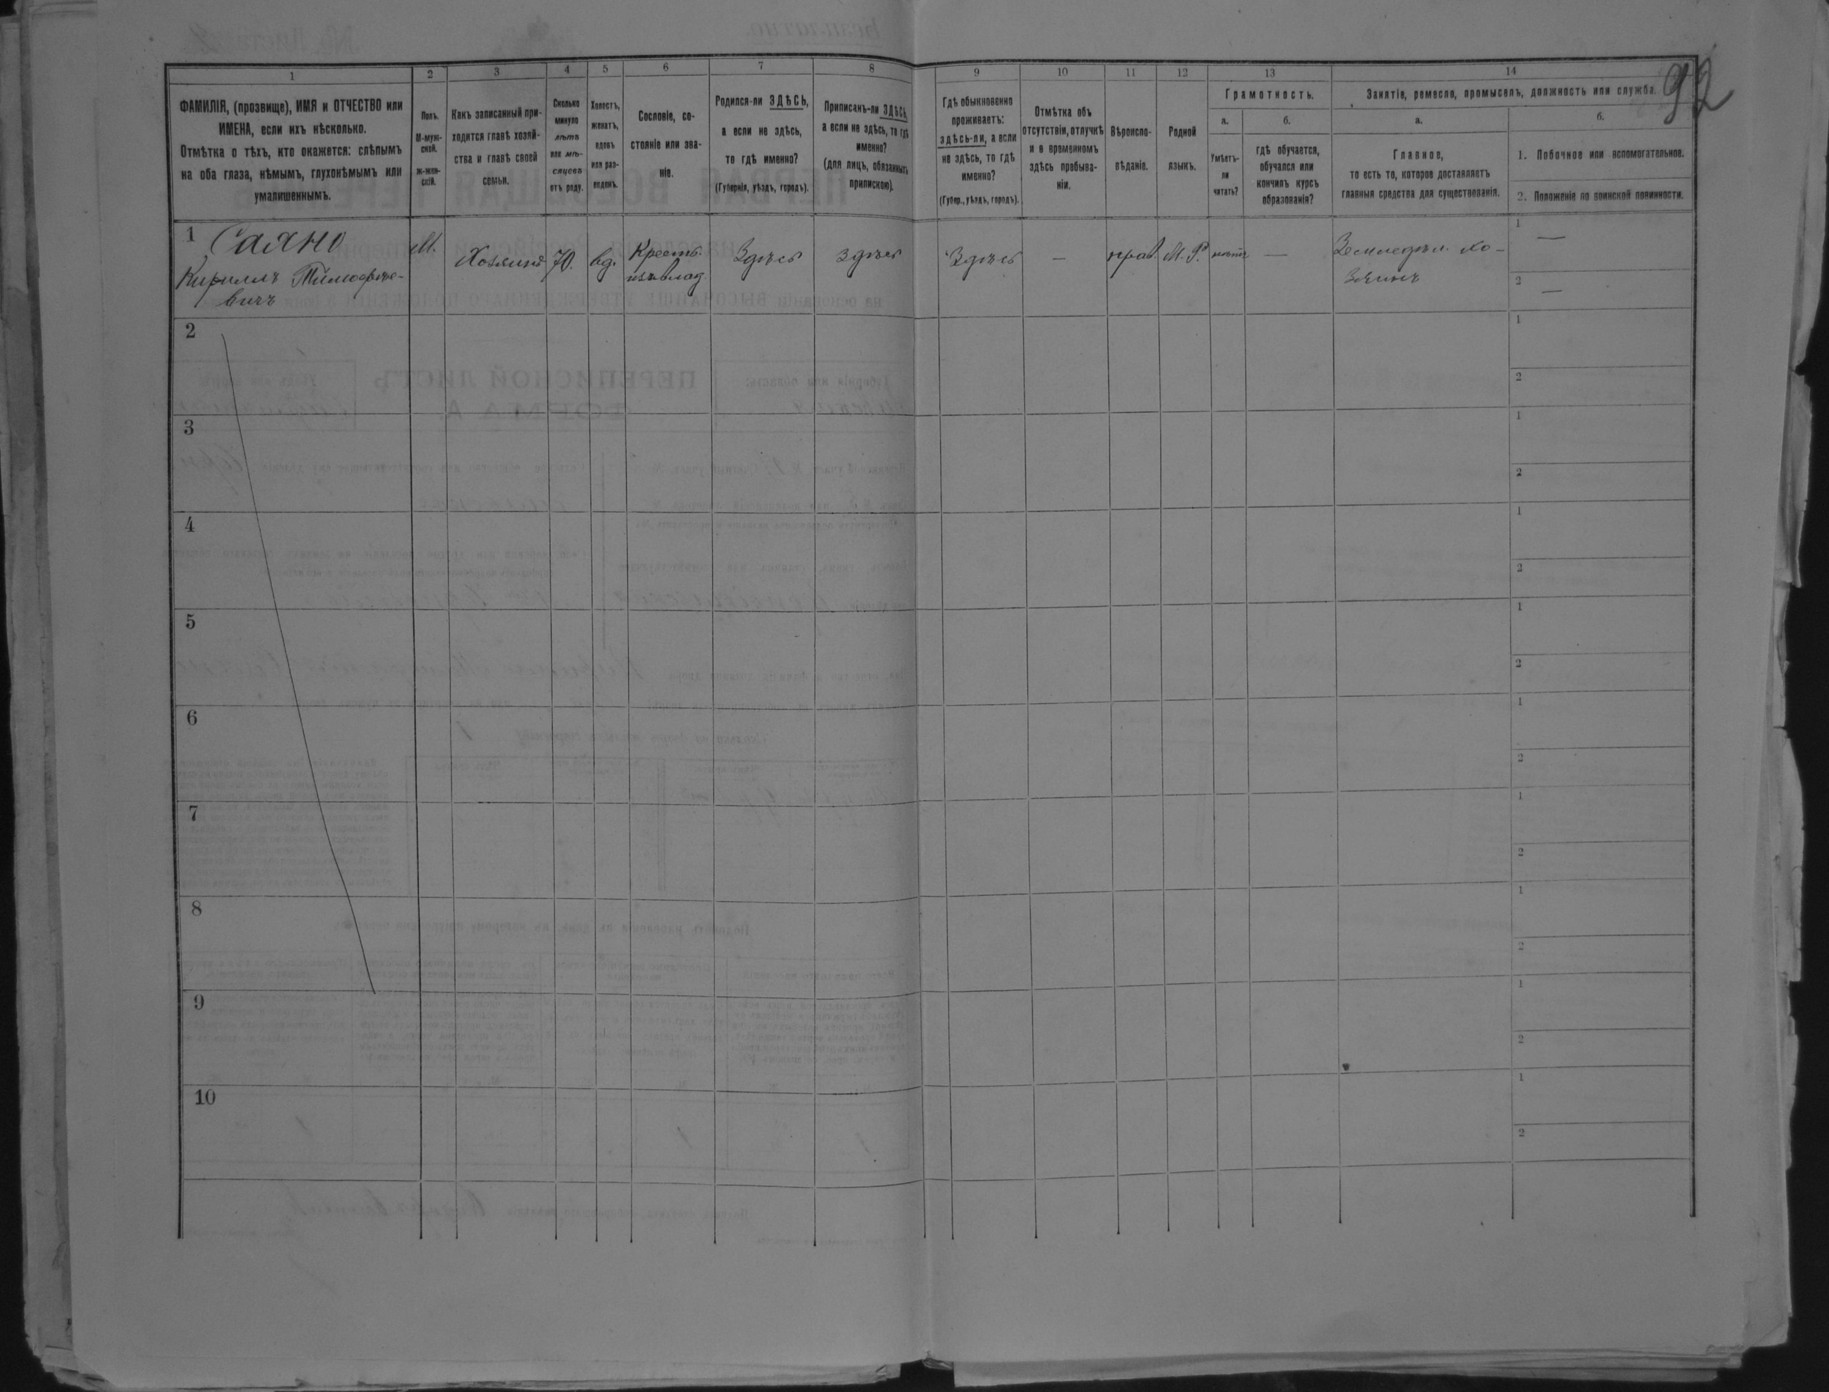 92
1 2 3 4 5 6 7 8 9 10 11 12 13 14
ФАМИЛІЯ, (прозвище), ИМЯ и ОТЧЕСТВО или
ИМЕНА, если ихъ нѣсколько.
Отмѣтка о тѣхъ, кто окажется: слѣпымъ
на оба глаза, нѣмымъ, глухонѣмымъ или
умалишеннымъ.
Полъ.
М-муж-
ской.
Ж-жен-
скій.
Какъ записанный при-
ходится главѣ хозяй-
ства и главѣ своей
семьи.
Сколько
минуло
лѣтъ
или мѣ-
сяцевъ
отъ роду.
Холостъ,
женатъ,
вдовъ
или раз-
веденъ.
Сословіе, со-
стояніе или зва-
ніе.
Родился-ли ЗДѢСЬ,
а если не здѣсь,
то гдѣ именно?
(Губернія, уѣздъ, городъ).
Приписанъ-ли ЗДѢСЬ,
а если не здѣсь, то гдѣ
именно?
(для лицъ, обязанныхъ
припискою).
Гдѣ обыкновенно
проживаетъ:
здѣсь-ли, а если
не здѣсь, то гдѣ
именно?
(Губер., уѣздъ, городъ).
Отмѣтка объ
отсутствіи, отлучкѣ
и о временномъ
здѣсь пребыва-
ніи.
Вѣроиспо-
вѣданіе.
Родной
языкъ.
Грамотность.
а.
Умѣетъ-
ли
читать?
б.
гдѣ обучается,
обучался или
кончилъ курсъ
образованія?
Занятіе, ремесло, промыселъ, должность или служба.
а.
Главное,
то есть то, которое доставляетъ
главныя средства для существованія.
б.
1. Побочное или вспомогательное.
2. Положеніе по воинской повинности.
1 Саяно
Кирилъ Тимофѣе-
вичъ
М.
Хозяинъ
70.
вд.
Крест.
изъ влад
Здѣсь
здѣсь
Здѣсь
—
прав.
М. Р.
нѣтъ
—
Земледѣл. хо-
зяинъ
1 —
2 —
2
1
2
3
1
2
4
1
2
5
1
2
6
1
2
7
1
2
8
1
2
9
1
2
10
1
2